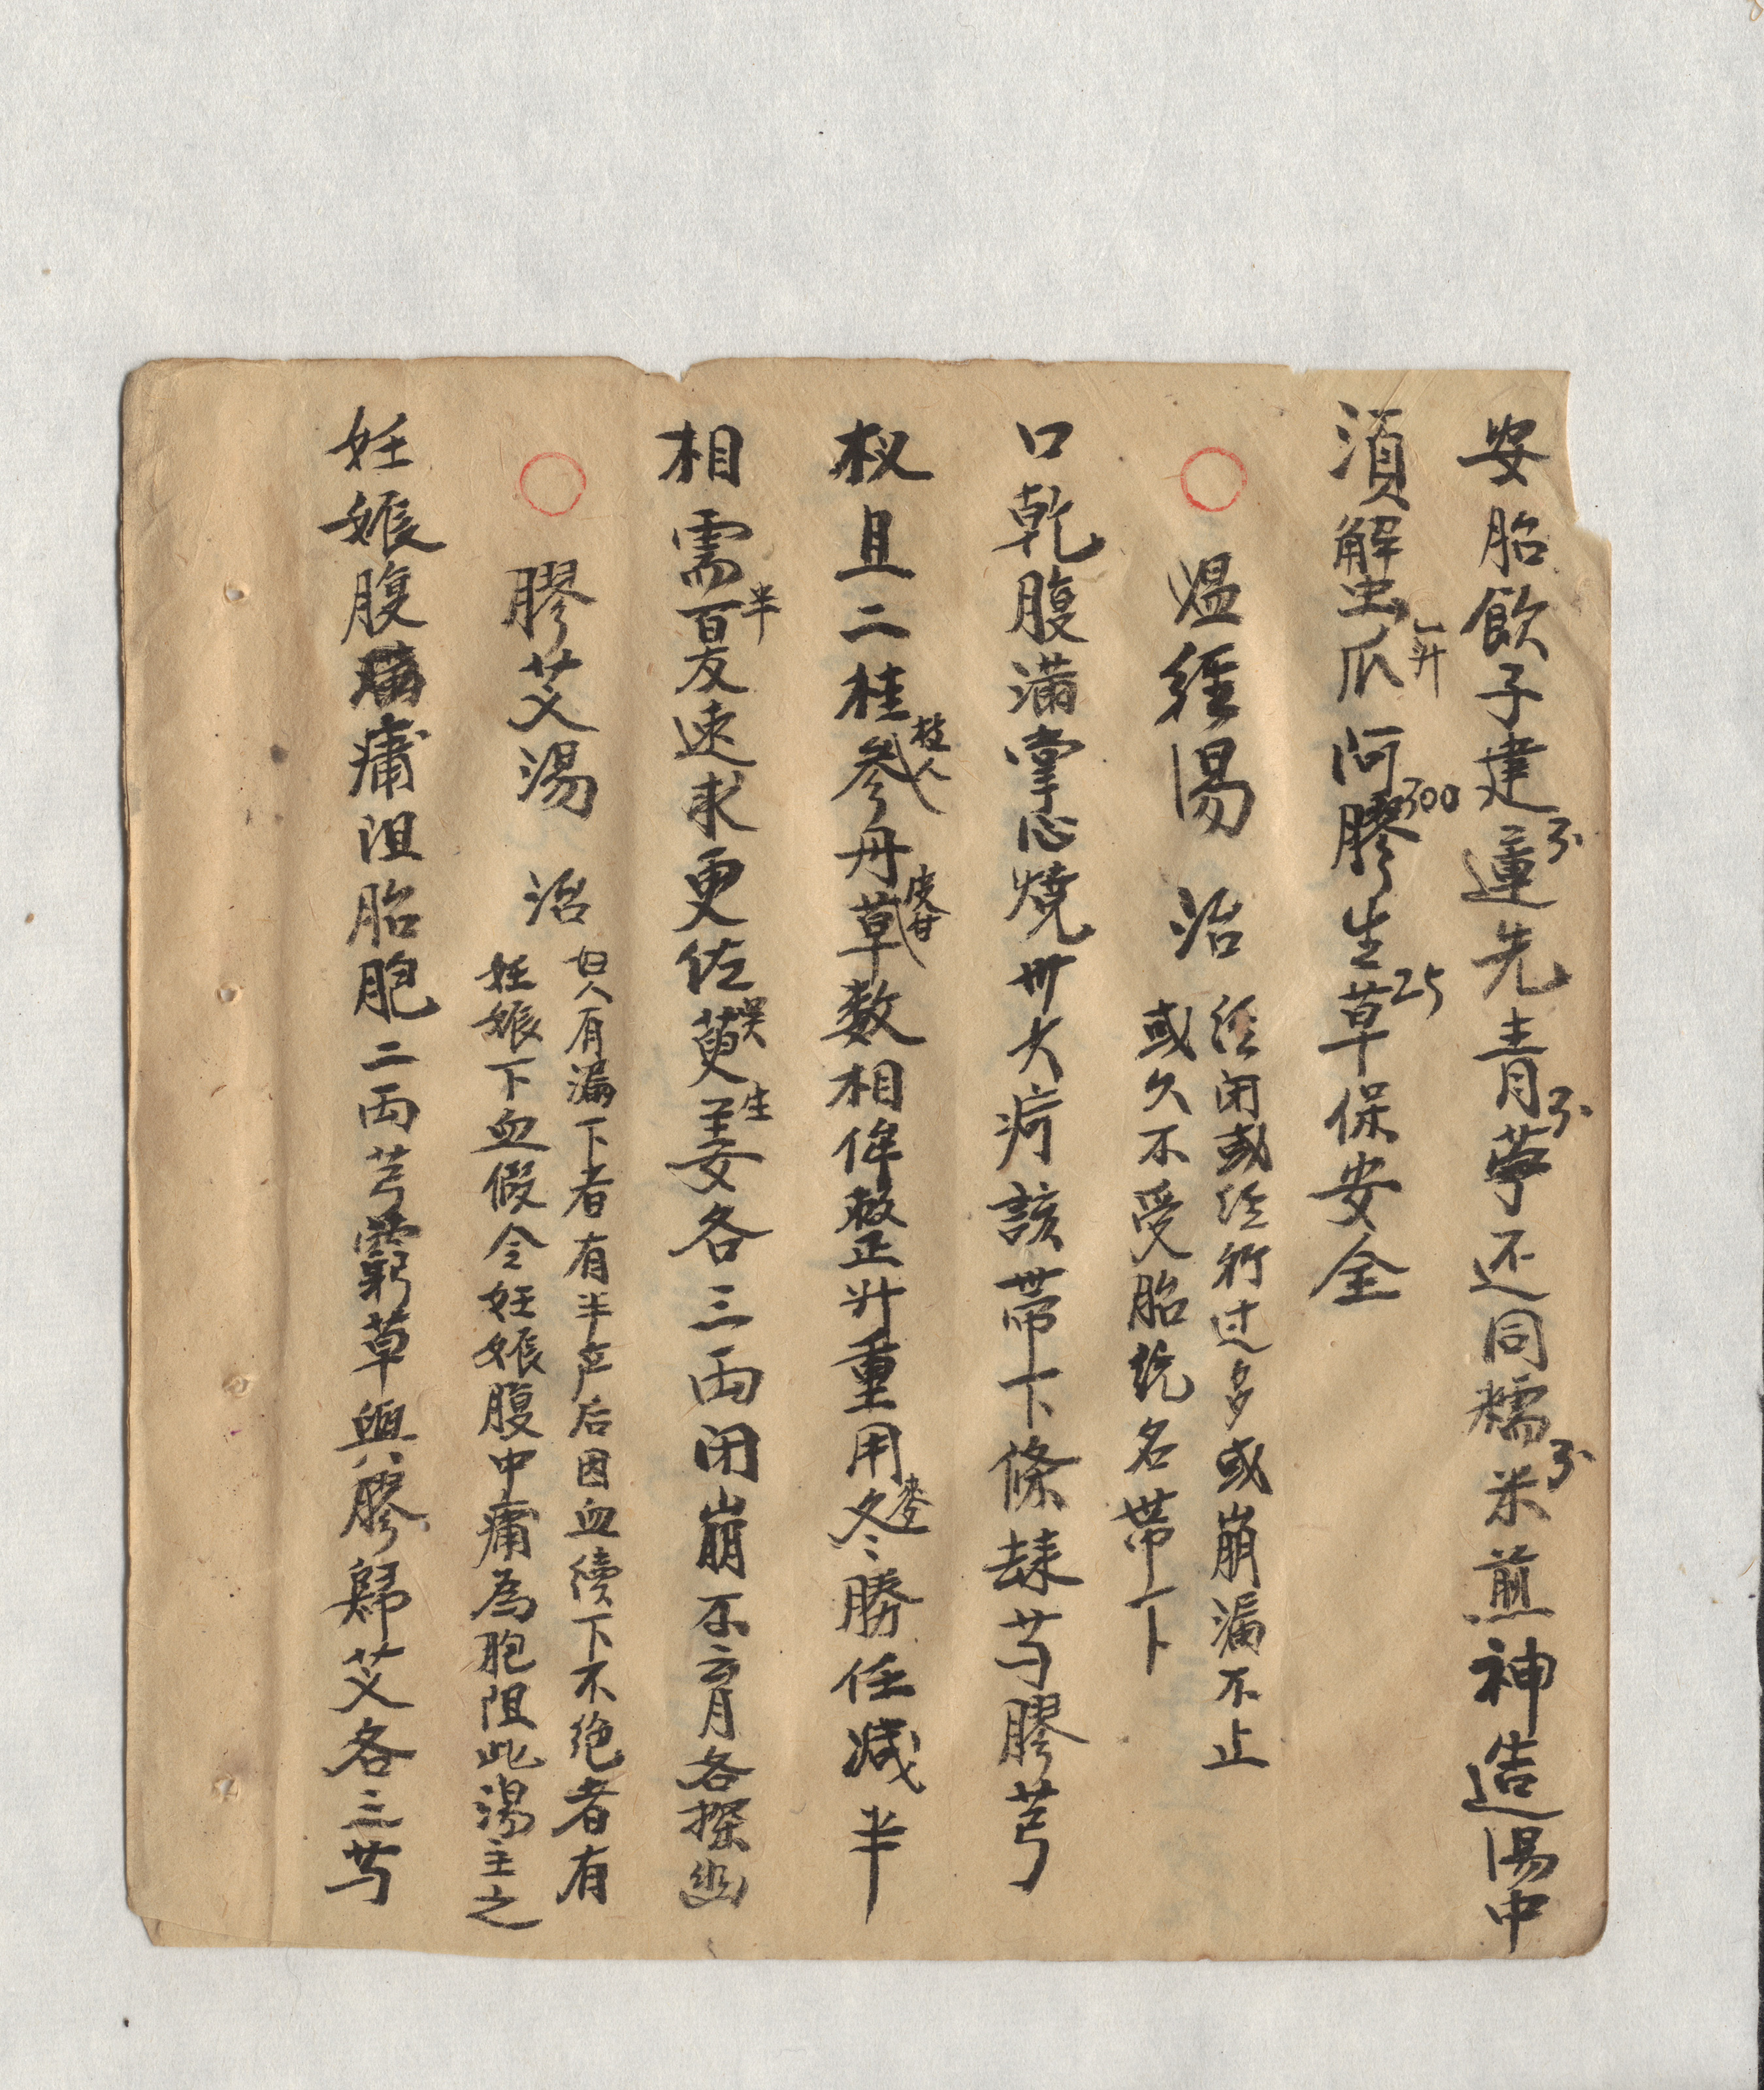 安胎飲子建蓮先青苧还同糯米煎神造湯中
須解蟹爪阿膠生草保安全
温經湯 治
經闭或經行过多或崩漏不止
或久不受胎統名帶下
口乾腹滿掌心燒卅六疴該帶下條歸芍膠芎
权且二桂枝人參丹皮甘草数相侔整正升重用麥冬勝任减半
相需半夏友速求更佐吴萸生姜各三両闭崩不育各探幽
膠艾湯 治
妇人有漏下者有半产后因血续下不绝者有
妊娠下血假令妊娠腹中痛為胞阻此湯主之
妊娠腹痛沮胎胞二両芎藭草與膠歸艾各三芍